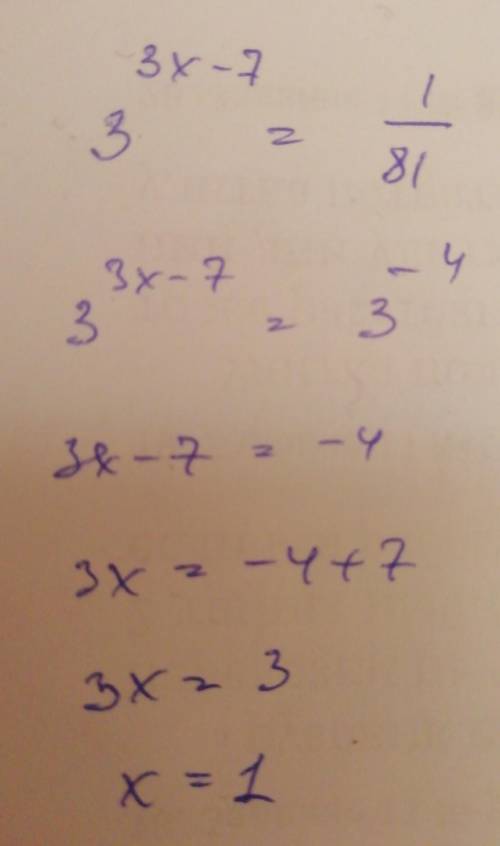 3^{3x-7} = \frac{1}{81}
3^{3x-7} = 3^{-4}
3x-7 = -4
3x = -4+7
3x = 3
x = 1